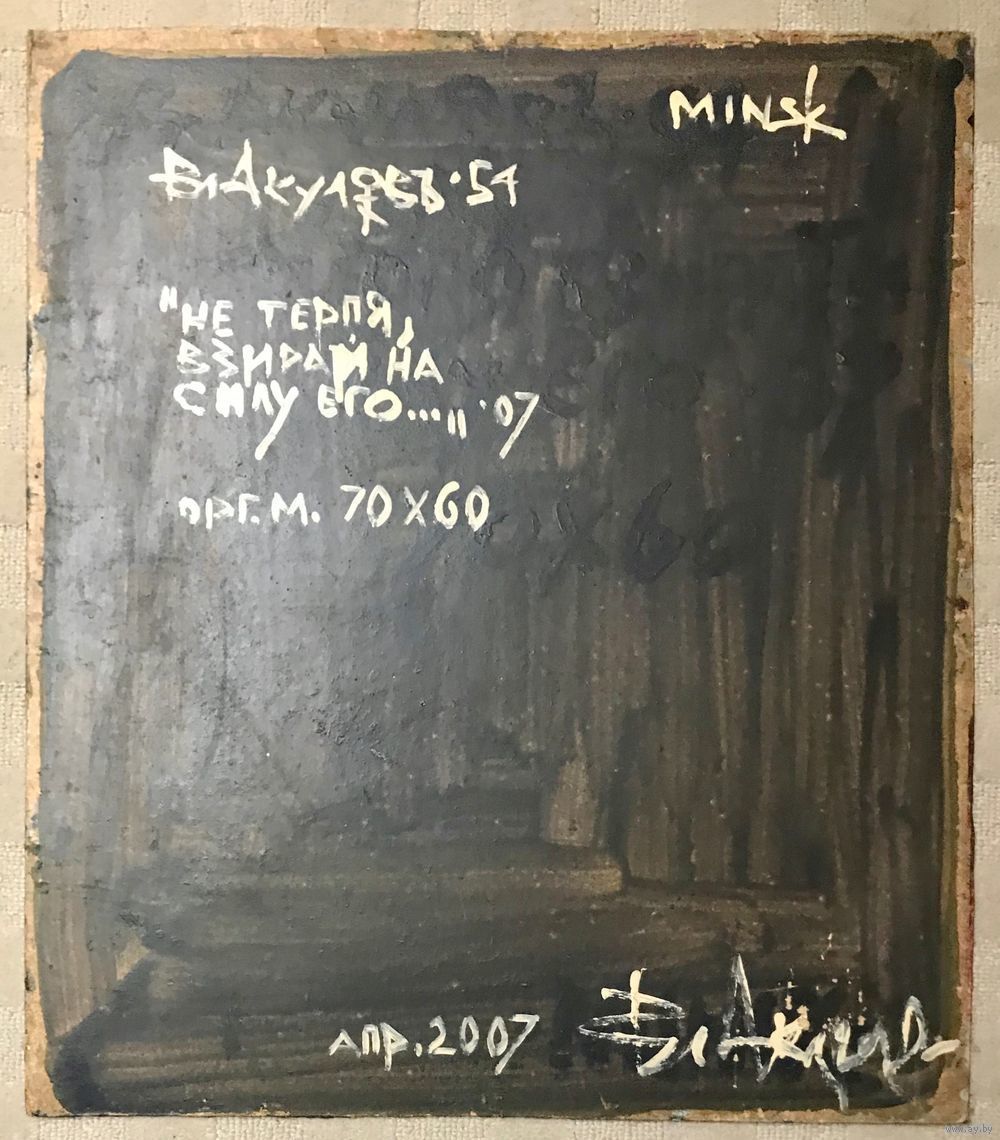 MINSK
Вл Акуловъ·54
"НЕ ТЕРПЯ,
ВЗИРАЙ НА
СИЛУ ЕГО..." '07
орг. м. 70x60
апр. 2007
www.ay.by